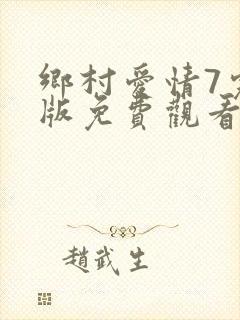 鄉村愛情7
版免費觀看
趙武生